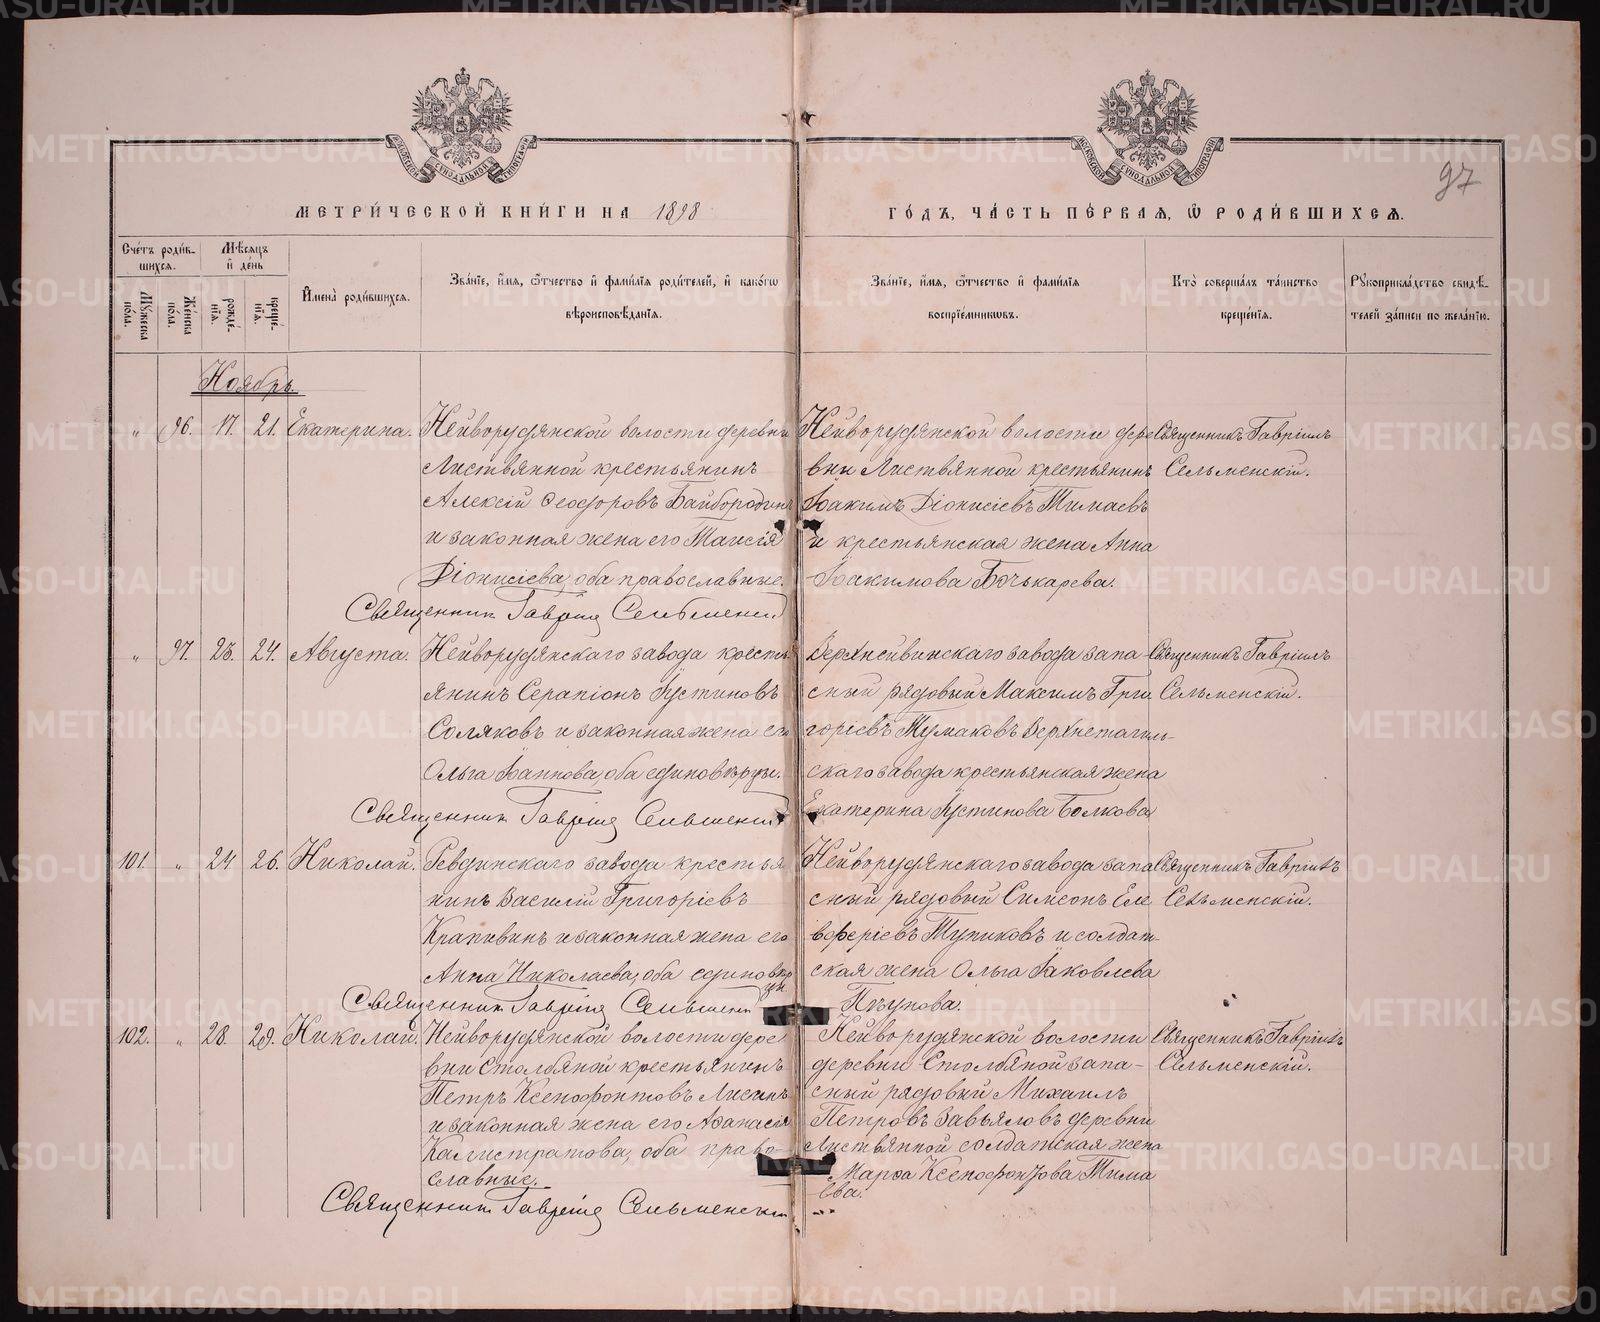 97
МЕТРИ́ЧЕСКОЙ КНИ́ГИ НА 1898
ГО́ДЪ, ЧА́СТЬ ПЕ́РВАѦ, Ѽ РОДИ́ВШИХСѦ.
Сче́тъ роди́в-
шихсѧ.
Мѣ́сѧцъ
и҆ де́нь
Мꙋ́жеска
по́ла.
Же́нска
по́ла.
рожде́-
нїѧ.
креще́-
нїѧ.
И҆мена̀ роди́вшихсѧ.
Зва́нїе, и҆́мѧ, ѻ҆́тчество и҆ фами́лїѧ роди́телей, и҆ како́гѡ
вѣроисповѣ́данїѧ.
Зва́нїе, и҆́мѧ, ѻ҆́тчество и҆ фами́лїѧ
воспрїе́мникѡвъ.
Кто̀ соверша́лъ та́инство
креще́нїѧ.
Рꙋкоприкла́дство свидѣ́-
телей за́писи по жела́нїю.
Ноябрь.
" 96. 17. 21. Екатерина.
Нейворудянской волости деревни
Листвянной крестьянинъ
Алексій Ѳеодоровъ Байбородинъ
и законная жена его Таисія
Діонисіева, оба православные.
Священник Гавріил Сельменский
Нейворудянской волости дере
вни Листвянной крестьянинъ
Іоакимъ Діонисіевъ Тимаевъ
и крестьянская жена Анна
Іоакимова Бочькарева.
Священникъ Гавріилъ
Сельменскій.
" 97. 23. 24. Августа.
Нейворудянскаго завода кресть
янинъ Серапіонъ Іустиновъ
Соляковъ и законная жена его
Ольга Іоаннова, оба единоверцы.
Священник Гавріил Сельменский
Верхнейвинскаго завода запа-
сный рядовый Максимъ Гри
горіевъ Тумаковъ Верхнетагиль-
скаго завода крестьянская жена
Екатерина Іустинова Болкова
Священникъ Гавріилъ
Сельменскій.
101. " 24 26. Николай.
Ревдинскаго завода крестья
нинъ Василій Григоріевъ
Крапивинъ и законная жена его
Анна Николаева, оба единовер
цы.
Священник Гавріил Сельменский
Нейворудянскаго завода запа
сный рядовый Симеонъ Еле
вферіевъ Тупиковъ и солдат-
ская жена Ольга Іаковлева
Пѣунова.
Священникъ Гавріилъ
Сельменскій.
102. " 28. 29. Николай.
Нейворудянской волости дере
вни Столбяной крестьянинъ
Петръ Ксенофонтовъ Лисинъ
и законная жена его Аѳанасія
Калистратова, оба право-
славные.
Священник Гавріил Сельменский
Нейворудянской волости
деревни Столбяной запа-
сный рядовый Михаилъ
Петровъ Завьяловъ деревни
Листвянной солдатская жена
Марѳа Ксенофонтова Тима
ева.
Священникъ Гавріилъ
Сельменскій.